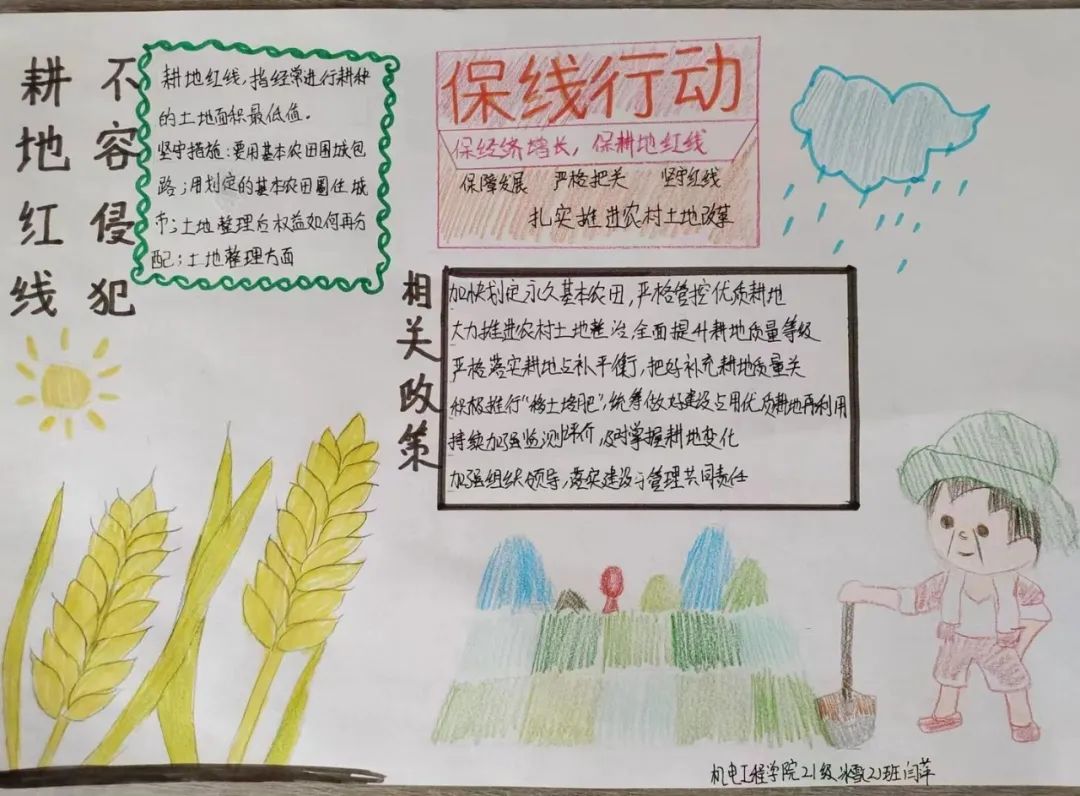 耕地红线
不容侵犯
耕地红线，指经常进行耕种
的土地面积最低值。
坚守措施：要用基本农田围城包
路；用划定的基本农田圈住城
市；土地整理后权益如何再分
配；土地整理方面
保线行动
保经济增长，保耕地红线
保障发展 严格把关 坚守红线
扎实推进农村土地改革
相关政策
加快划定永久基本农田，严格管控优质耕地
大力推进农村土地整治，全面提升耕地质量等级
严格落实耕地占补平衡，把好补充耕地质量关
积极推行“移土培肥”，统筹做好建设占用优质耕地再利用
持续加强监测评价，及时掌握耕地变化
加强组织领导，落实建设于管理共同责任
机电工程学院21级 21班闫萍